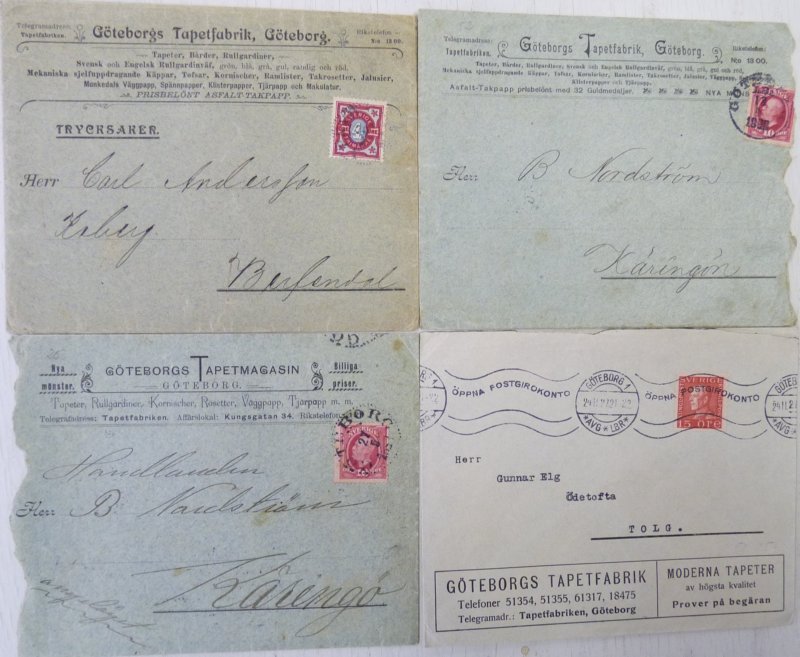 Telegramadress:
Tapetfabriken.
Göteborgs Tapetfabrik, Göteborg.
Rikstelefon
No 18 00.
Tapeter, Bårder, Rullgardiner,
Svensk och Engelsk Rullgardinväf, grön, blå, grå, gul, randig och röd.
Mekaniska sjelfuppdragande Käppar, Tofsar, Kornischer, Ramlister, Takrosetter, Jalusier,
Monkedals Väggpapp, Spännpapper, Klisterpapper, Tjärpapp och Makulatur.
PRISBELÖNT ASFALT-TAKPAPP.
TRYCKSAKER.
SVERIGE
Herr Carl Andersson
Berfendal
Telegramadress:
Tapetfabriken.
Göteborgs Tapetfabrik, Göteborg.
Rikstelefon:
No 18 00.
Tapeter, Bårder, Rullgardiner, Svensk och Engelsk Rullgardinväf, grön, blå, grå, gul och röd.
Mekaniska sjelfuppdragande Käppar, Tofsar, Kornischer, Ramlister, Takrosetter, Jalusier, Väggpapp,
Klisterpapper, Tjärpapp och Makulatur.
Asfalt-Takpapp prisbelönt med 32 Guldmedaljer.
NYA
10
Herr B Nordström
Käringön
Nya
mönster.
GÖTEBORGS TAPETMAGASIN
GÖTEBORG.
Billiga
priser.
Tapeter, Rullgardiner, Kornischer, Rosetter, Väggpapp, Tjärpapp m. m.
Telegrafadress: Tapetfabriken. Affärslokal: Kungsgatan 34. Rikstelefon
Handlanden
Herr B. Nordström
Käringö
ÖPPNA POSTGIROKONTO
GÖTEBORG 1
*AVG*LBR*
ÖPPNA POSTGIROKONTO
SVERIGE
15 ÖRE
Herr
Gunnar Elg
Ödetofta
TOLG.
GÖTEBORGS TAPETFABRIK
Telefoner 51354, 51355, 61317, 18475
Telegramadr.: Tapetfabriken, Göteborg
MODERNA TAPETER
av högsta kvalitet
Prover på begäran